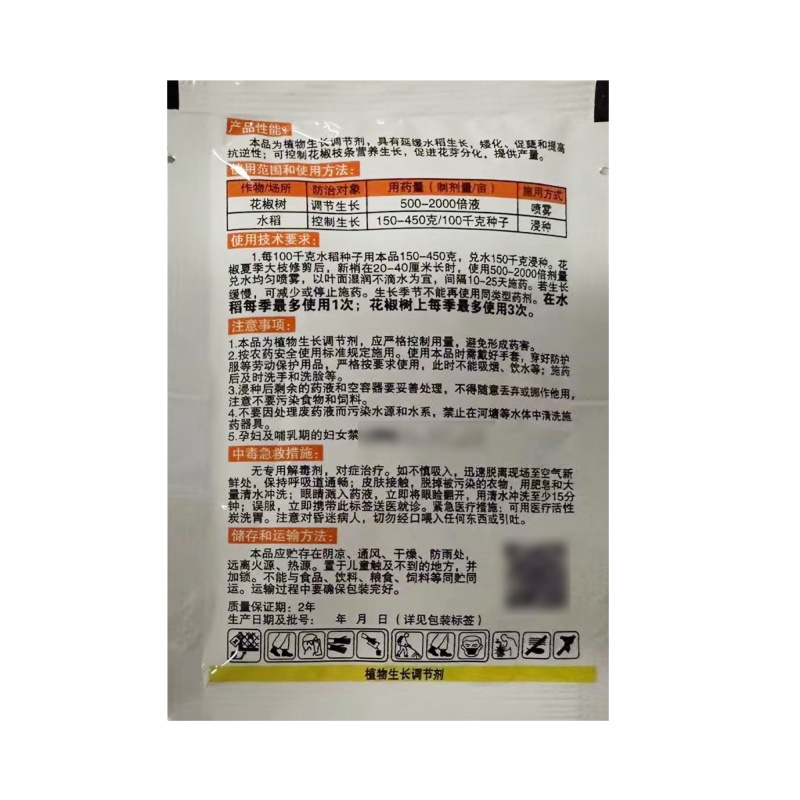 产品性能:
本品为植物生长调节剂，具有延缓水稻生长，矮化、促蘖和提高
抗逆性；可控制花椒枝条营养生长，促进花芽分化，提供产量。
使用范围和使用方法:
作物/场所 防治对象 用药量（制剂量/亩） 施用方式
花椒树 调节生长 500-2000倍液 喷雾
水稻 控制生长 150-450克/100千克种子 浸种
使用技术要求:
1.每100千克水稻种子用本品150-450克，兑水150千克浸种。花
椒夏季大枝修剪后，新梢在20-40厘米长时，使用500-2000倍剂量
兑水均匀喷雾，以叶面湿润不滴水为宜，间隔10-25天施药。若生长
缓慢，可减少或停止施药。生长季节不能再使用同类型药剂。在水
稻每季最多使用1次；花椒树上每季最多使用3次。
注意事项:
1.本品为植物生长调节剂，应严格控制用量，避免形成药害。
2.按农药安全使用标准规定施用。使用本品时需戴好手套，穿好防护
服等劳动保护用品，严格按要求使用，此时不能吸烟、饮水等；施药
后及时洗手和洗脸等。
3.浸种后剩余的药液和空容器要妥善处理，不得随意丢弃或挪作他用，
注意不要污染食物和饲料。
4.不要因处理废药液而污染水源和水系，禁止在河塘等水体中清洗施
药器具。
5.孕妇及哺乳期的妇女禁
中毒急救措施:
无专用解毒剂，对症治疗。如不慎吸入，迅速脱离现场至空气新
鲜处，保持呼吸道通畅；皮肤接触，脱掉被污染的衣物，用肥皂和大
量清水冲洗；眼睛溅入药液，立即将眼睑翻开，用清水冲洗至少15分
钟；误服，立即携带此标签送医就诊。紧急医疗措施：可用医疗活性
炭洗胃。注意对昏迷病人，切勿经口喂入任何东西或引吐。
储存和运输方法:
本品应贮存在阴凉、通风、干燥、防雨处，
远离火源、热源。置于儿童触及不到的地方，并
加锁。不能与食品、饮料、粮食、饲料等同贮同
运。运输过程中要确保包装完好。
质量保证期：2年
生产日期及批号： 年 月 日（详见包装标签）
植物生长调节剂